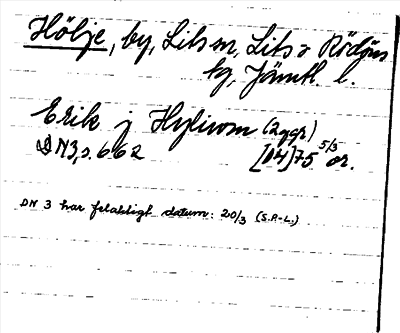 Hölje, by, Lits sn, Lits o Rödöns
tg, Jämtl. l.
Erik j Hyliom (2 ggr)
DN3, s. 662 [14]75 5/3 or.
DN 3 har felaktigt datum: 20/3 (S.R-L.)